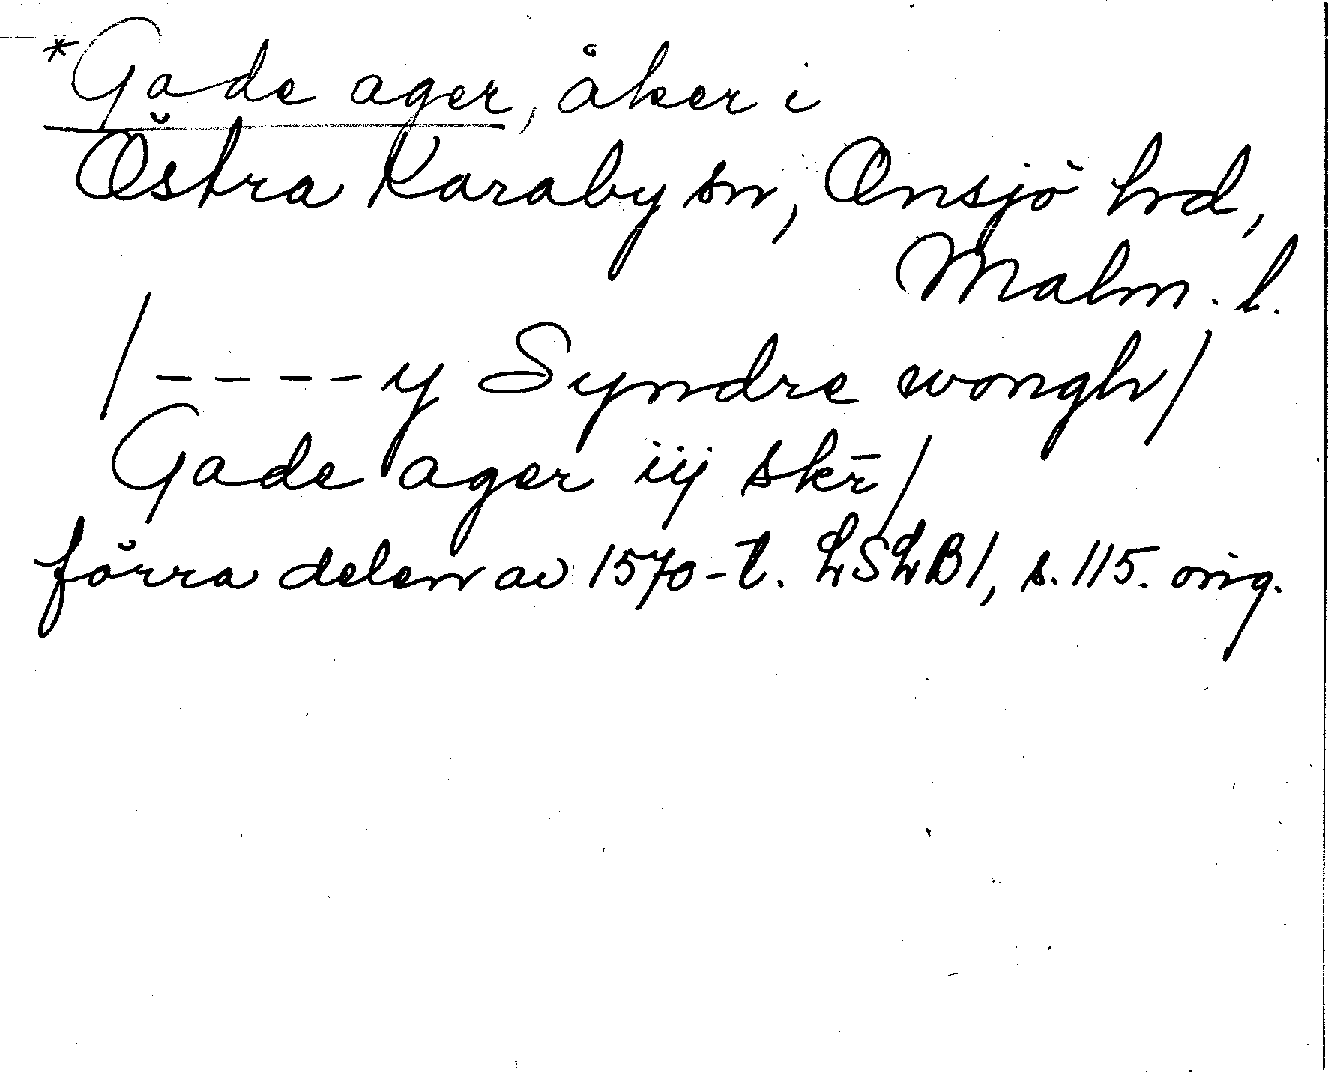 *Gade ager, åker i
Östra Karaby sn, Onsjö hrd,
Malm. l.
/ - - - - y Syndre wongh/
Gade ager iij skr̄/
förra delen av 1570-t. LSLB1, s. 115. orig.